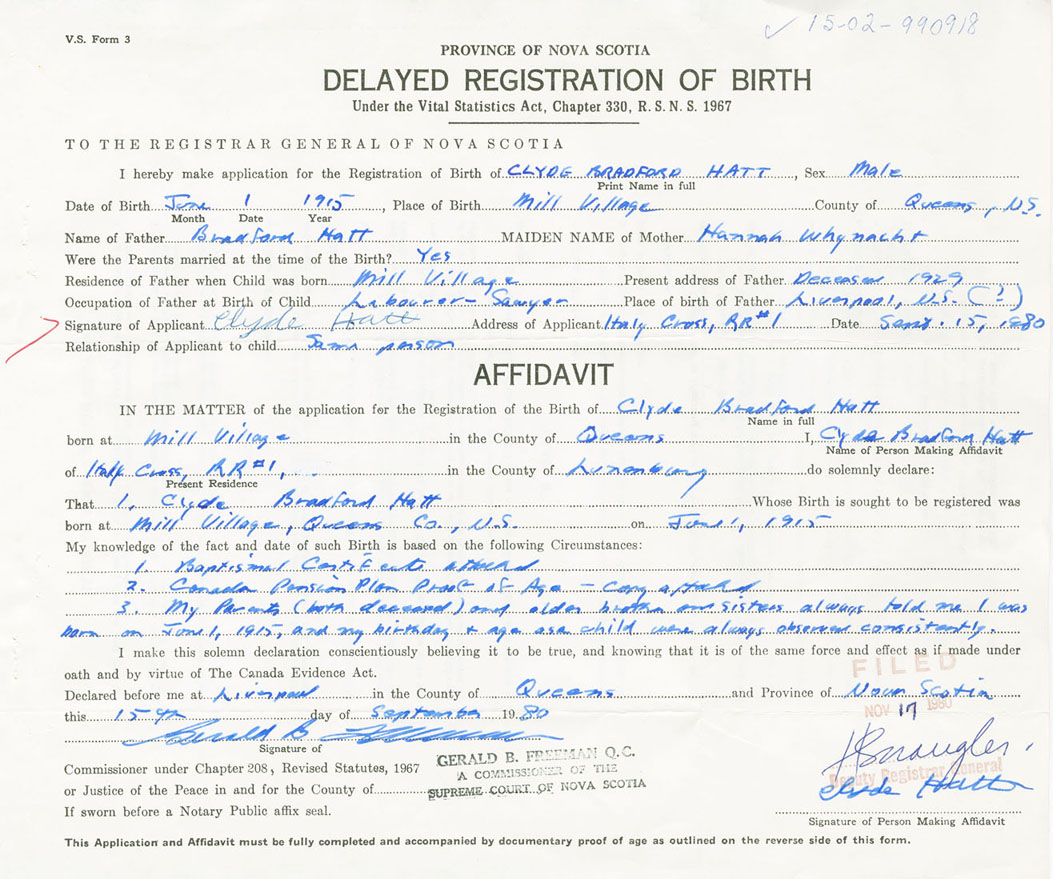 15-02-990918
V.S. Form 3
PROVINCE OF NOVA SCOTIA
DELAYED REGISTRATION OF BIRTH
Under the Vital Statistics Act, Chapter 330, R. S. N. S. 1967
TO THE REGISTRAR GENERAL OF NOVA SCOTIA
I hereby make application for the Registration of Birth of CLYDE BRADFORD HATT, Sex Male
Print Name in full
Date of Birth June 1 1915, Place of Birth Mill Village County of Queens, N.S.
Month Date Year
Name of Father Bradford Hatt MAIDEN NAME of Mother Hannah Whynacht
Were the Parents married at the time of the Birth? Yes
Residence of Father when Child was born Mill Village Present address of Father Deceased 1929
Occupation of Father at Birth of Child Labourer - Sawyer Place of birth of Father Liverpool, N.S. (?)
Signature of Applicant Clyde Hatt Address of Applicant Italy Cross, RR#1 Date Sept. 15, 1980
Relationship of Applicant to child Same person
AFFIDAVIT
IN THE MATTER of the application for the Registration of the Birth of Clyde Bradford Hatt
Name in full
born at Mill Village in the County of Queens I, Clyde Bradford Hatt
Name of Person Making Affidavit
of Italy Cross, RR#1, in the County of Lunenburg do solemnly declare:
Present Residence
That 1. Clyde Bradford Hatt Whose Birth is sought to be registered was
born at Mill Village, Queens Co., N.S. on June 1, 1915
My knowledge of the fact and date of such Birth is based on the following Circumstances:
1. Baptismal Certificate attached
2. Canada Pension Plan Proof of Age - Copy attached
3. My Parents (both deceased) and older brother and sisters always told me I was
born on June 1, 1915, and my birthday + age as a child were always observed consistently.
I make this solemn declaration conscientiously believing it to be true, and knowing that it is of the same force and effect as if made under
oath and by virtue of The Canada Evidence Act.
FILED
Declared before me at Liverpool in the County of Queens and Province of Nova Scotia
this 15th day of September 19 80
NOV 17 1980
Gerald B.
Signature of
GERALD B. FREEMAN Q.C.
Commissioner under Chapter 208, Revised Statutes, 1967
A COMMISSIONER OF THE
Deputy Registrar General
or Justice of the Peace in and for the County of
SUPREME COURT OF NOVA SCOTIA
Clyde Hatt
If sworn before a Notary Public affix seal.
Signature of Person Making Affidavit
This Application and Affidavit must be fully completed and accompanied by documentary proof of age as outlined on the reverse side of this form.